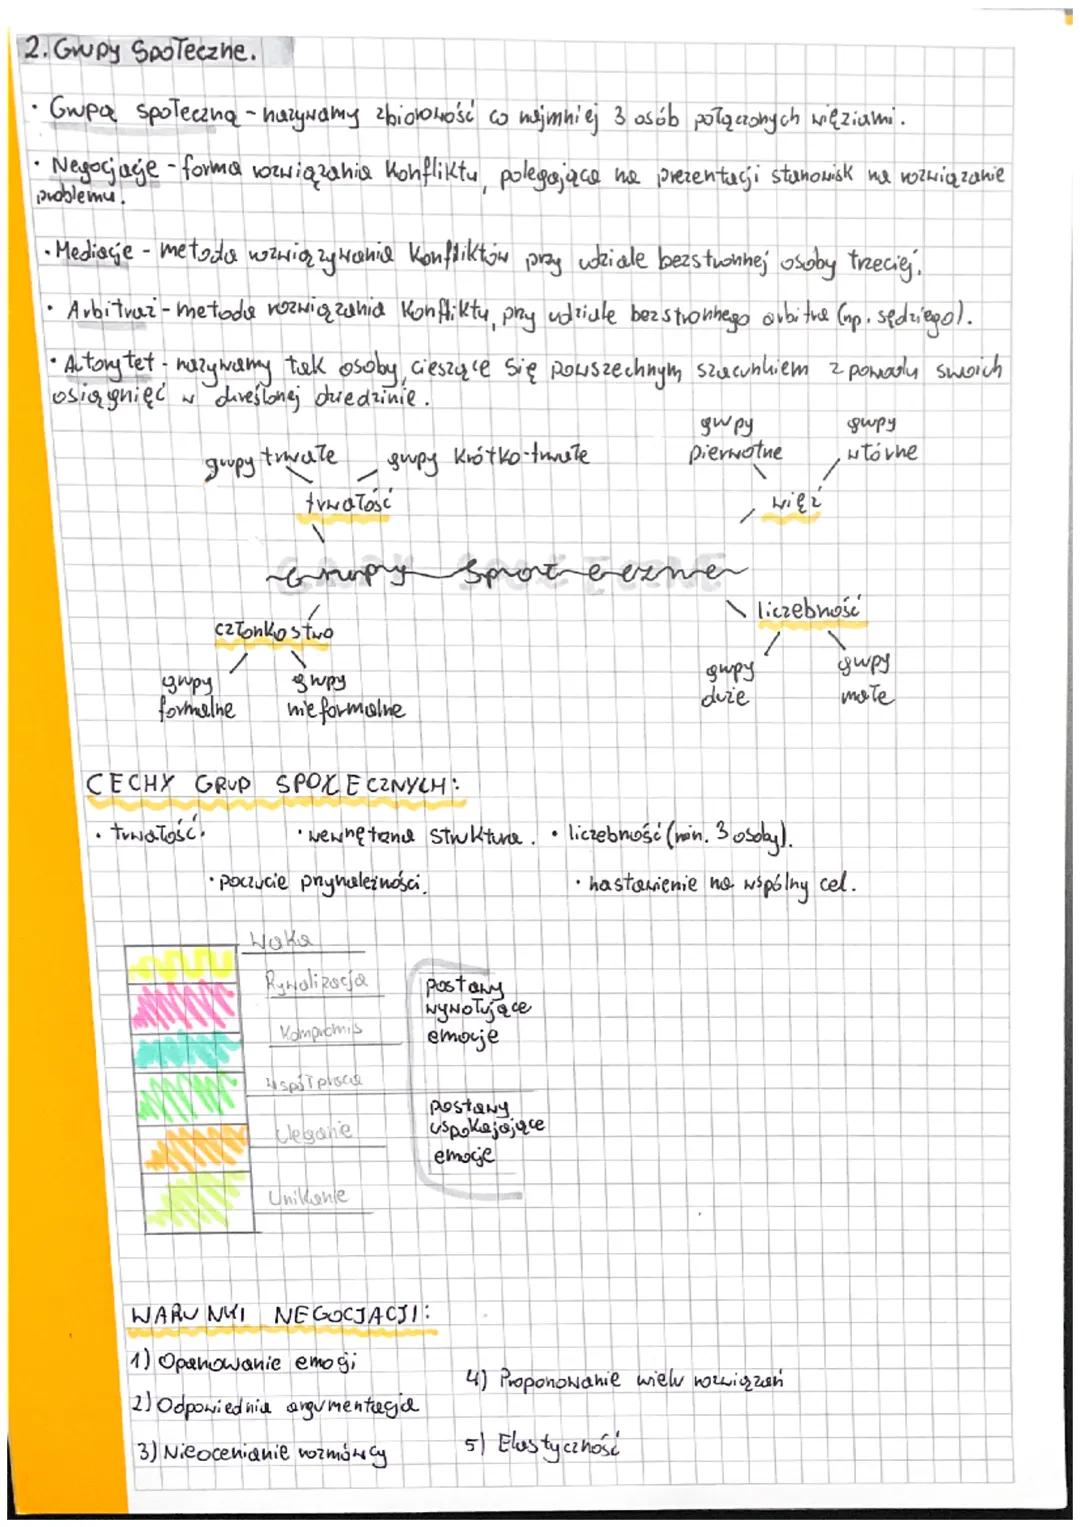 2. Grupy Społeczne.
• Grupą społeczną - nazywamy zbiorowość co najmniej 3 osób połączonych więziami.
• Negocjacje - forma rozwiązania konfliktu, polegająca na prezentacji stanowisk na rozwiązanie
problemu.
• Mediacje - metoda rozwiązywania konfliktów przy udziale bezstronnej osoby trzeciej.
• Arbitraż - metoda rozwiązania konfliktu, przy udziale bezstronnego arbitra (np. sędziego).
• Autorytet - nazywamy tak osoby, cieszące się powszechnym szacunkiem z powodu swoich
osiągnięć w określonej dziedzinie.
grupy trwałe
grupy krótko-trwałe
trwałość
grupy
pierwotne
grupy
wtórne
więź
Grupy Społeczne
członkostwo
grupy
formalne
grupy
nieformalne
liczebność
grupy
duże
grupy
małe
CECHY GRUP SPOŁECZNYCH:
• trwałość.
• wewnętrzna struktura.
• liczebność (min. 3 osoby).
• poczucie przynależności.
• nastawienie na wspólny cel.
Walka
Rywalizacja
Kompromis
Współpraca
Uleganie
Unikanie
postawy
wywołujące
emocje
postawy
uspokajające
emocje
WARUNKI NEGOCJACJI:
1) Opanowanie emocji
2) Odpowiednia argumentacja
3) Nieocenianie rozmówcy
4) Proponowanie wielu rozwiązań
5) Elastyczność